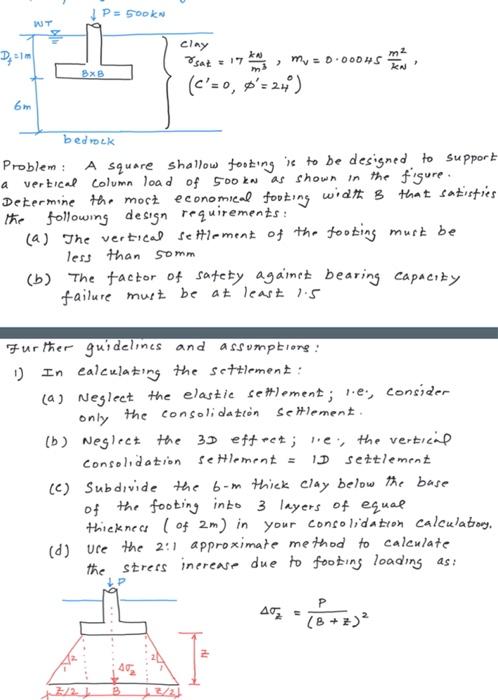 P = 500kN
WT
clay
Df = 1m
γsat = 17 kN/m³, mv = 0.00045 m²/kN,
BxB
(c' = 0, φ' = 24°)
6m
bedrock
Problem: A square shallow footing is to be designed to support
a vertical column load of 500 kN as shown in the figure.
Determine the most economical footing width B that satisfies
the following design requirements:
(a) The vertical settlement of the footing must be
less than 50mm
(b) The factor of safety against bearing capacity
failure must be at least 1.5
Further guidelines and assumptions:
1) In calculating the settlement:
(a) Neglect the elastic settlement; i.e., consider
only the consolidation settlement.
(b) Neglect the 3D effect; i.e., the vertical
consolidation settlement = 1D settlement
(c) Subdivide the 6-m thick clay below the base
of the footing into 3 layers of equal
thickness (of 2m) in your consolidation calculations.
(d) Use the 2:1 approximate method to calculate
the stress increase due to footing loading as:
P
Δσz = P/(B + z)²
2 1 2 1
z
Δσz
z/2 B z/2